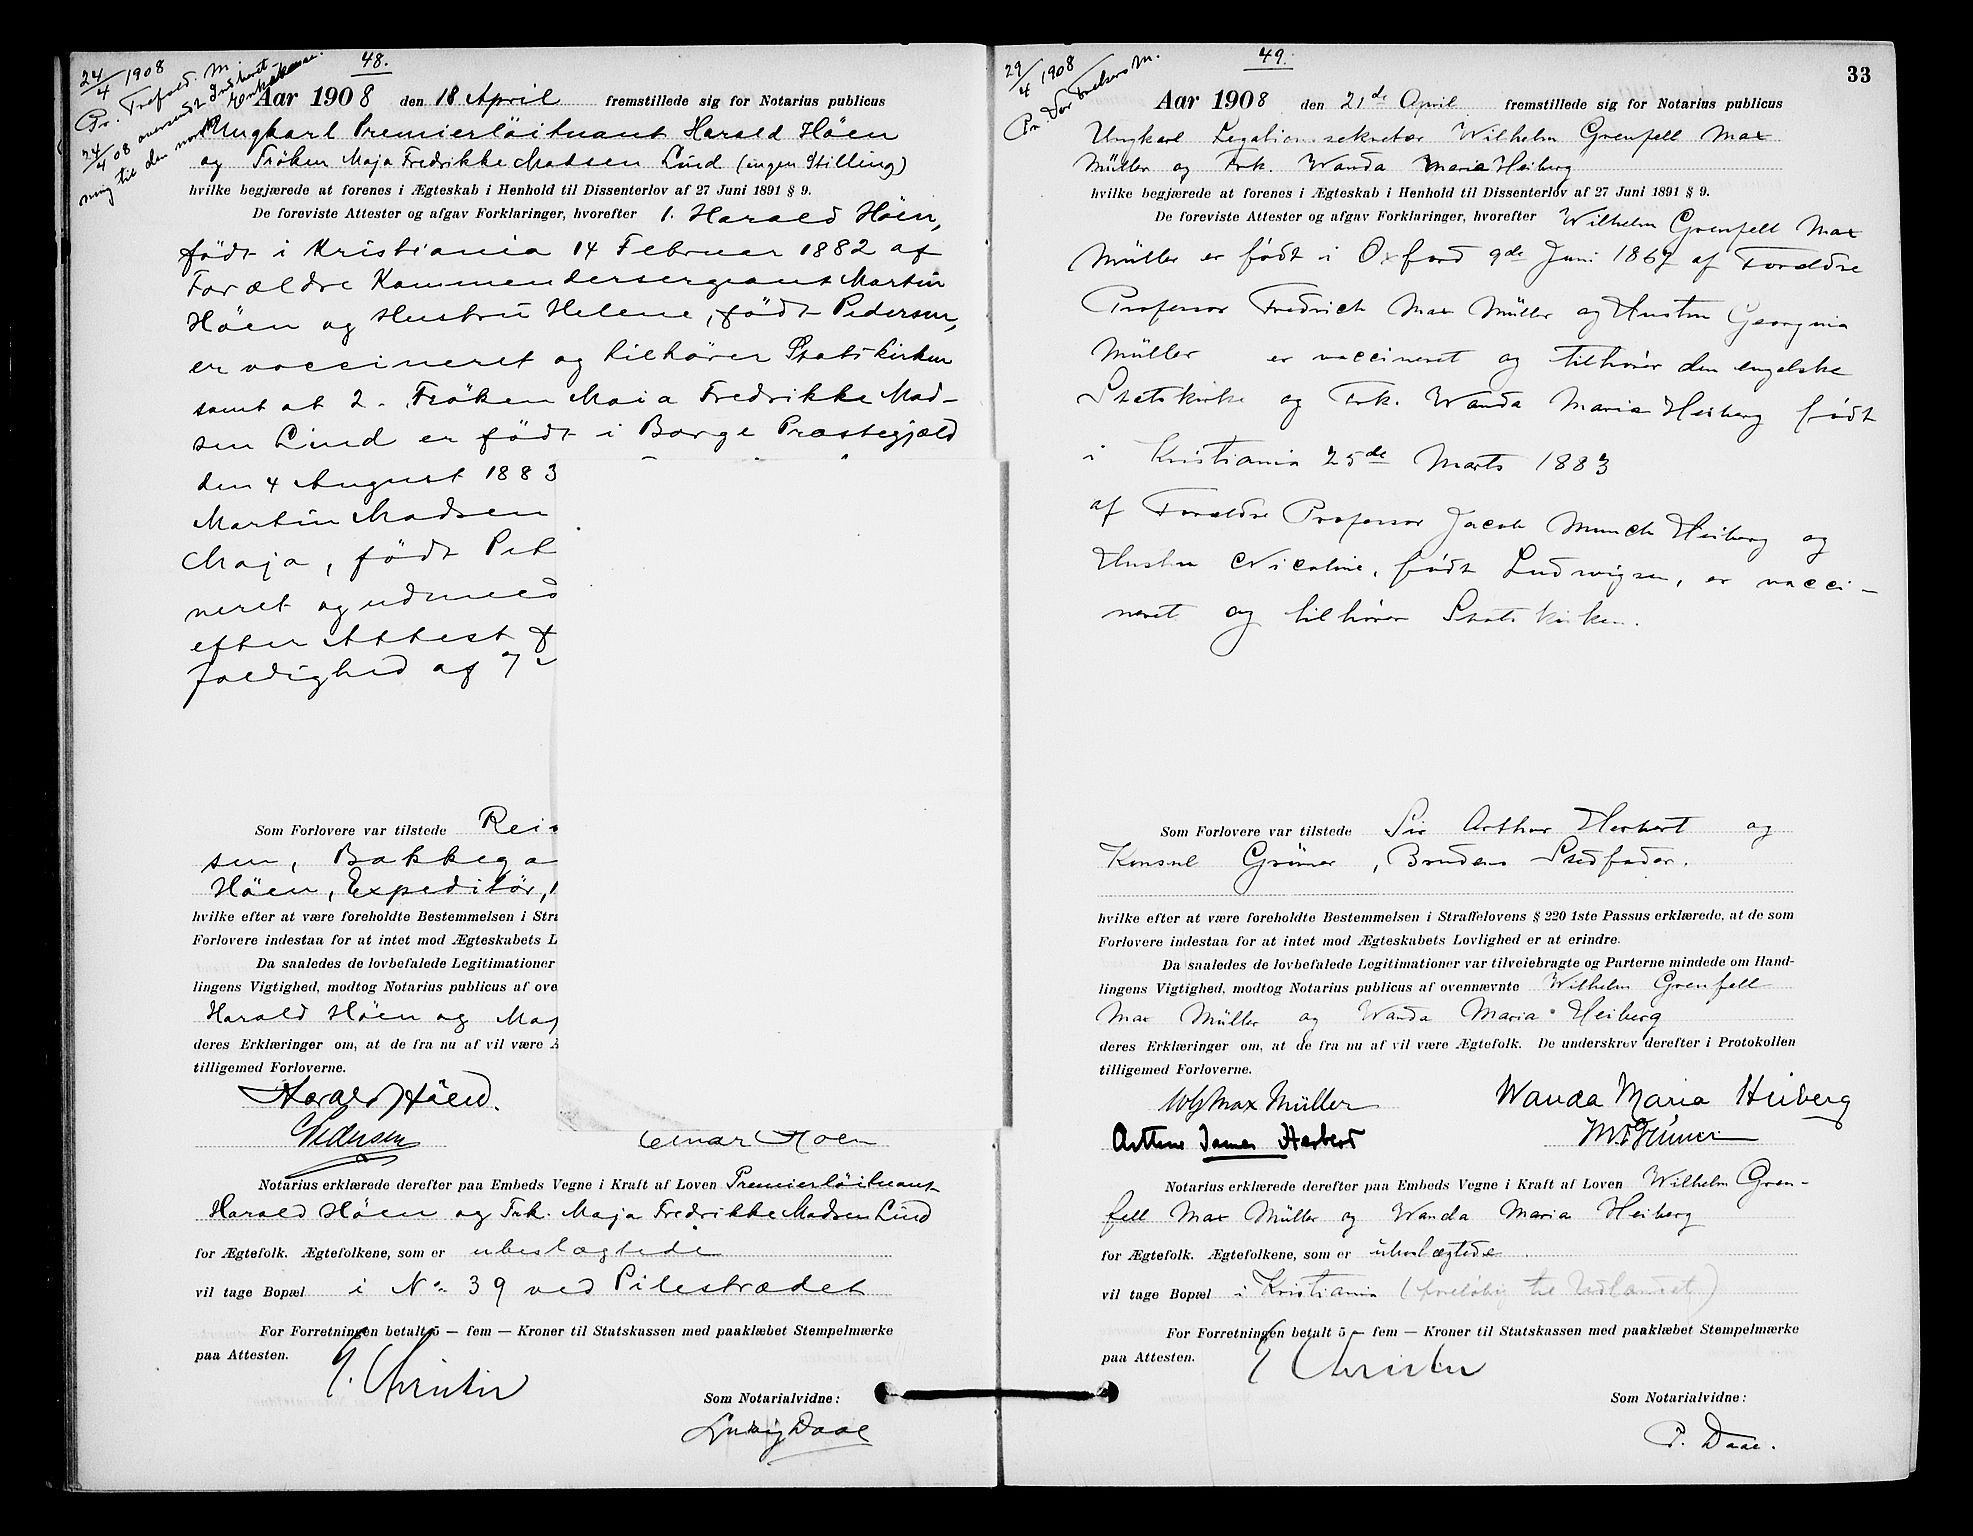 24/4 1908
Pr. Trefald. M.
48.
Aar 1908 den 18 April fremstillede sig for Notarius publicus
Ungkarl Premierlöitnant Harald Höen
og Fröken Maja Fredrikke Madsen Lind (ingen Stilling)
hvilke begjærede at forenes i Ægteskab i Henhold til Dissenterlov af 27 Juni 1891 § 9.
De foreviste Attester og afgav Forklaringer, hvorefter 1. Harald Höen,
födt i Kristiania 14 Februar 1882 af
Forældre Kommendersergeant Martin
Höen og Hustru Helene, födt Pedersen,
er vaccineret og tilhører Statskirken
samt at 2. Fröken Maia Fredrikke Mad-
sen Lind er födt i Borge Præstegjæld
den 4 August 1883
Martin Madsen
Maja, födt Pet
neret og udmeld
efter Attest f
foldighed af 7
Som Forlovere var tilstede Rei
sen, Bakkega
Höen, Expeditör,
hvilke efter at være foreholdte Bestemmelsen i Stra
Forlovere indestaa for at intet mod Ægteskabets L
Da saaledes de lovbefalede Legitimationer
lingens Vigtighed, modtog Notarius publicus af ove
Harald Höen og Maj
deres Erklæringer om, at de fra nu af vil være Æ
tilligemed Forloverne.
Harald Höen.
Pedersen
Einar Höen
Notarius erklærede derefter paa Embeds Vegne i Kraft af Loven Premierlöitnant
Harald Höen og Frk. Maja Fredrikke Madsen Lind
for Ægtefolk. Ægtefolkene, som er ubeslægtede
vil tage Bopæl i No 39 ved Pilestrædet
For Forretningen betalt 5 — fem — Kroner til Statskassen med paaklæbet Stempelmærke
paa Attesten.
Som Notarialvidne:
Ludvig Daae
29/4 1908
33
49.
Aar 1908 den 21de April fremstillede sig for Notarius publicus
Ungkarl Legationssekretær Wilhelm Grenfell Max
Müller og Frk. Wanda Maria Heiberg
hvilke begjærede at forenes i Ægteskab i Henhold til Dissenterlov af 27 Juni 1891 § 9.
De foreviste Attester og afgav Forklaringer, hvorefter Wilhelm Grenfell Max
Müller er født i Oxford 9de Juni 1867 af Forældre
Professor Fredrich Max Müller og Hustru Georgina
Müller er vaccineret og tilhører den engelske
Statskirke og Frk. Wanda Maria Heiberg født
i Kristiania 25de Marts 1883
af Forældre Professor Jacob Munch Heiberg og
Hustru Nicoline, født Ludwigsen, er vacci-
neret og tilhører Statskirken.
Som Forlovere var tilstede Sir Arthur Herbert og
Konsul Grüner, Brudens Stedfader.
hvilke efter at være foreholdte Bestemmelsen i Straffelovens § 220 1ste Passus erklærede, at de som
Forlovere indestaa for at intet mod Ægteskabets Lovlighed er at erindre.
Da saaledes de lovbefalede Legitimationer var tilveiebragte og Parterne mindede om Hand-
lingens Vigtighed, modtog Notarius publicus af ovennævnte Wilhelm Grenfell
Max Müller og Wanda Maria Heiberg
deres Erklæringer om, at de fra nu af vil være Ægtefolk. De underskrev derefter i Protokollen
tilligemed Forloverne.
WG Max Müller Wanda Maria Heiberg
Arthur James Herbert
Notarius erklærede derefter paa Embeds Vegne i Kraft af Loven Wilhelm Gren-
fell Max Müller og Wanda Maria Heiberg
for Ægtefolk. Ægtefolkene, som er ubeslægtede.
vil tage Bopæl i Kristiania (foreløbig til Udlandet)
For Forretningen betalt 5 — fem — Kroner til Statskassen med paaklæbet Stempelmærke
paa Attesten.
Som Notarialvidne:
P. Daae.